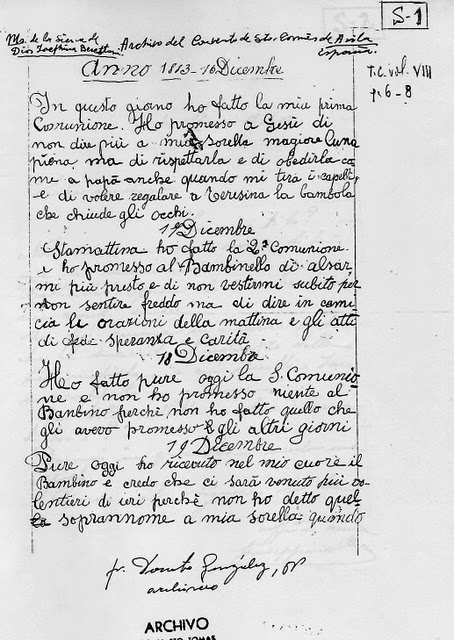 S-1
Ms. de la Sierva de
Dios Josephina Berettoni
Archivo del Convento de Sto. Tomás de Avila
España.
Anno 1813-16 Dicembre
T.C. vol. VIII
p. 6-8
In questo giorno ho fatto la mia prima
Comunione. Ho promesso a Gesù di
non dire più a mia sorella magiore Luna
piena ma di rispettarla e di obedirla co
me a papà anche quando mi tira i capelli
e di volere regalare a Teresina la bambola
che chiude gli occhi.
17 Dicembre
Stamattina ho fatto la 2ª Comunione.
e ho promesso al Bambinello di alsar
mi più presto e di non vestirmi subito per
non sentire freddo ma di dire in cami
cia le orazioni della mattina e gli atti
di fede speranza e carità.
18 Dicembre
Ho fatto pure oggi la S. Comunio
ne e non ho promesso niente al
Bambino perchè non ho fatto quello che
gli avevo promesso gli altri giorni
19 Dicembre
Pure oggi ho ricevuto nel mio cuore il
Bambino e credo che ci sarà venuto più vo
lentieri di ieri perchè non ho detto quel
soprannome a mia sorella quando
fr. Donato González, OP
archivero
ARCHIVO